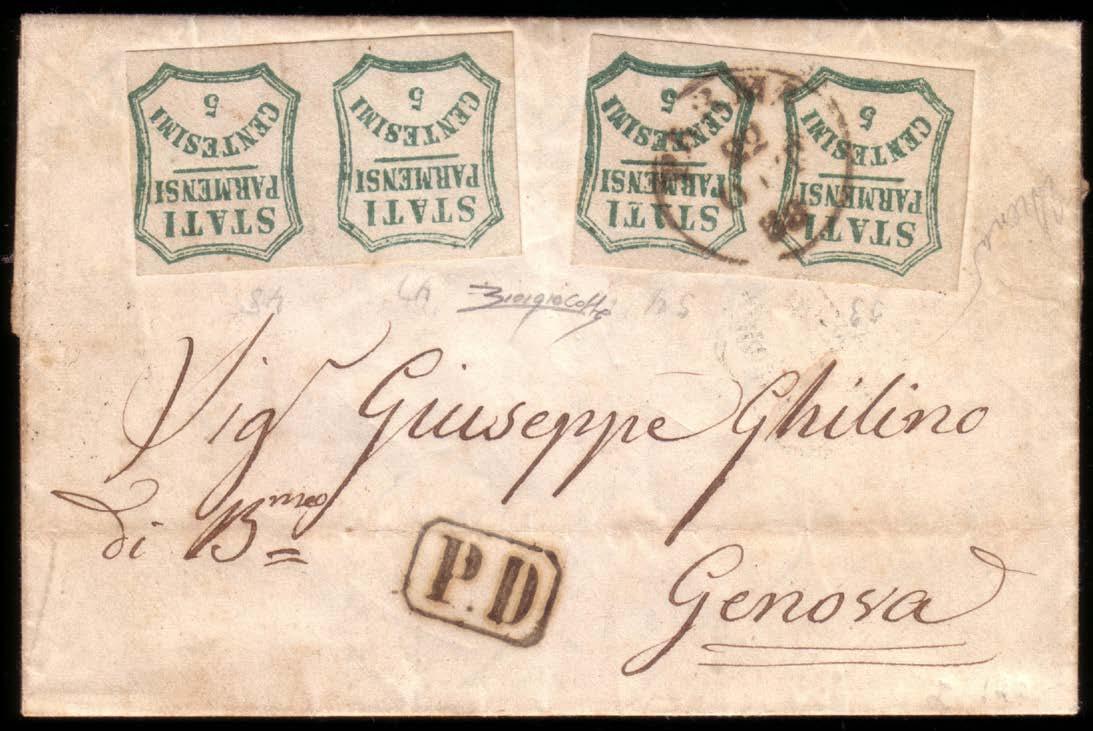 STATI PARMENSI CENTESIMI 5
STATI PARMENSI CENTESIMI 5
STATI PARMENSI CENTESIMI 5
STATI PARMENSI CENTESIMI 5
48 47 54 53
Sigr Giuseppe Ghilino
di Bmeo
P.D
Genova